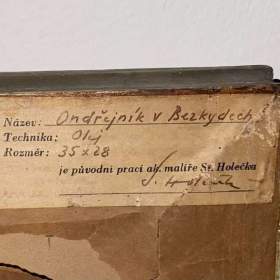 Název: Ondřejník v Bezkydech
Technika: Olej
Rozměr: 35x28
je původní prací ak. malíře St. Holečka
S. Holeček